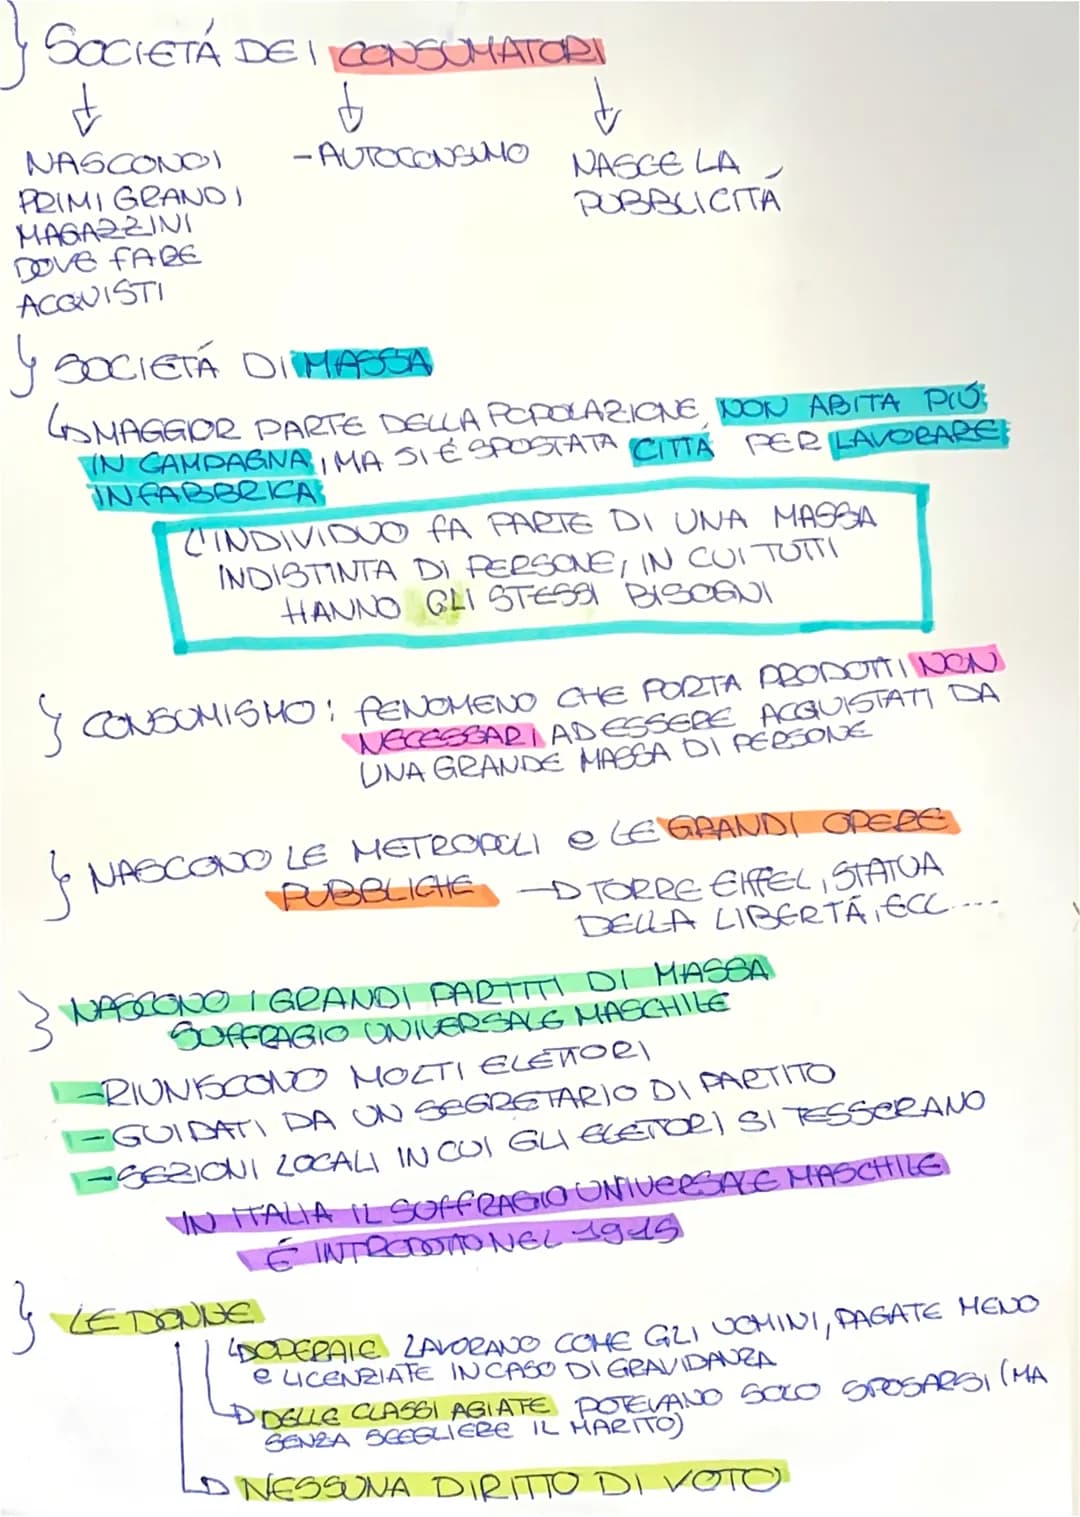 SOCIETÁ DEI CONSUMATORI
NASCONO I
PRIMI GRANDI
MAGAZZINI
DOVE FARE
ACQUISTI
- AUTOCONSUMO
NASCE LA
PUBBLICITÁ
SOCIETÁ DI MASSA
MAGGIOR PARTE DELLA POPOLAZIONE NON ABITA PIÚ
IN CAMPAGNA, MA SI É SPOSTATA CITTÁ PER LAVORARE
IN FABBRICA
L'INDIVIDUO FA PARTE DI UNA MASSA
INDISTINTA DI PERSONE, IN CUI TUTTI
HANNO GLI STESSI BISOGNI
CONSUMISMO: FENOMENO CHE PORTA PRODOTTI NON
NECESSARI AD ESSERE ACQUISTATI DA
UNA GRANDE MASSA DI PERSONE
NASCONO LE METROPOLI e LE GRANDI OPERE
PUBBLICHE → TORRE EIFFEL, STATUA
DELLA LIBERTÁ, ECC....
NASCONO I GRANDI PARTITI DI MASSA
SUFFRAGIO UNIVERSALE MASCHILE
- RIUNISCONO MOLTI ELETTORI
- GUIDATI DA UN SEGRETARIO DI PARTITO
- SEZIONI LOCALI IN CUI GLI ELETTORI SI TESSERANO
IN ITALIA IL SUFFRAGIO UNIVERSALE MASCHILE
É INTRODOTTO NEL
LE DONNE
OPERAIE LAVORANO COME GLI UOMINI, PAGATE MENO
e LICENZIATE IN CASO DI GRAVIDANZA
DELLE CLASSI AGIATE POTEVANO SOLO SPOSARSI (MA
SENZA SCEGLIERE IL MARITO)
NESSUNA DIRITTO DI VOTO